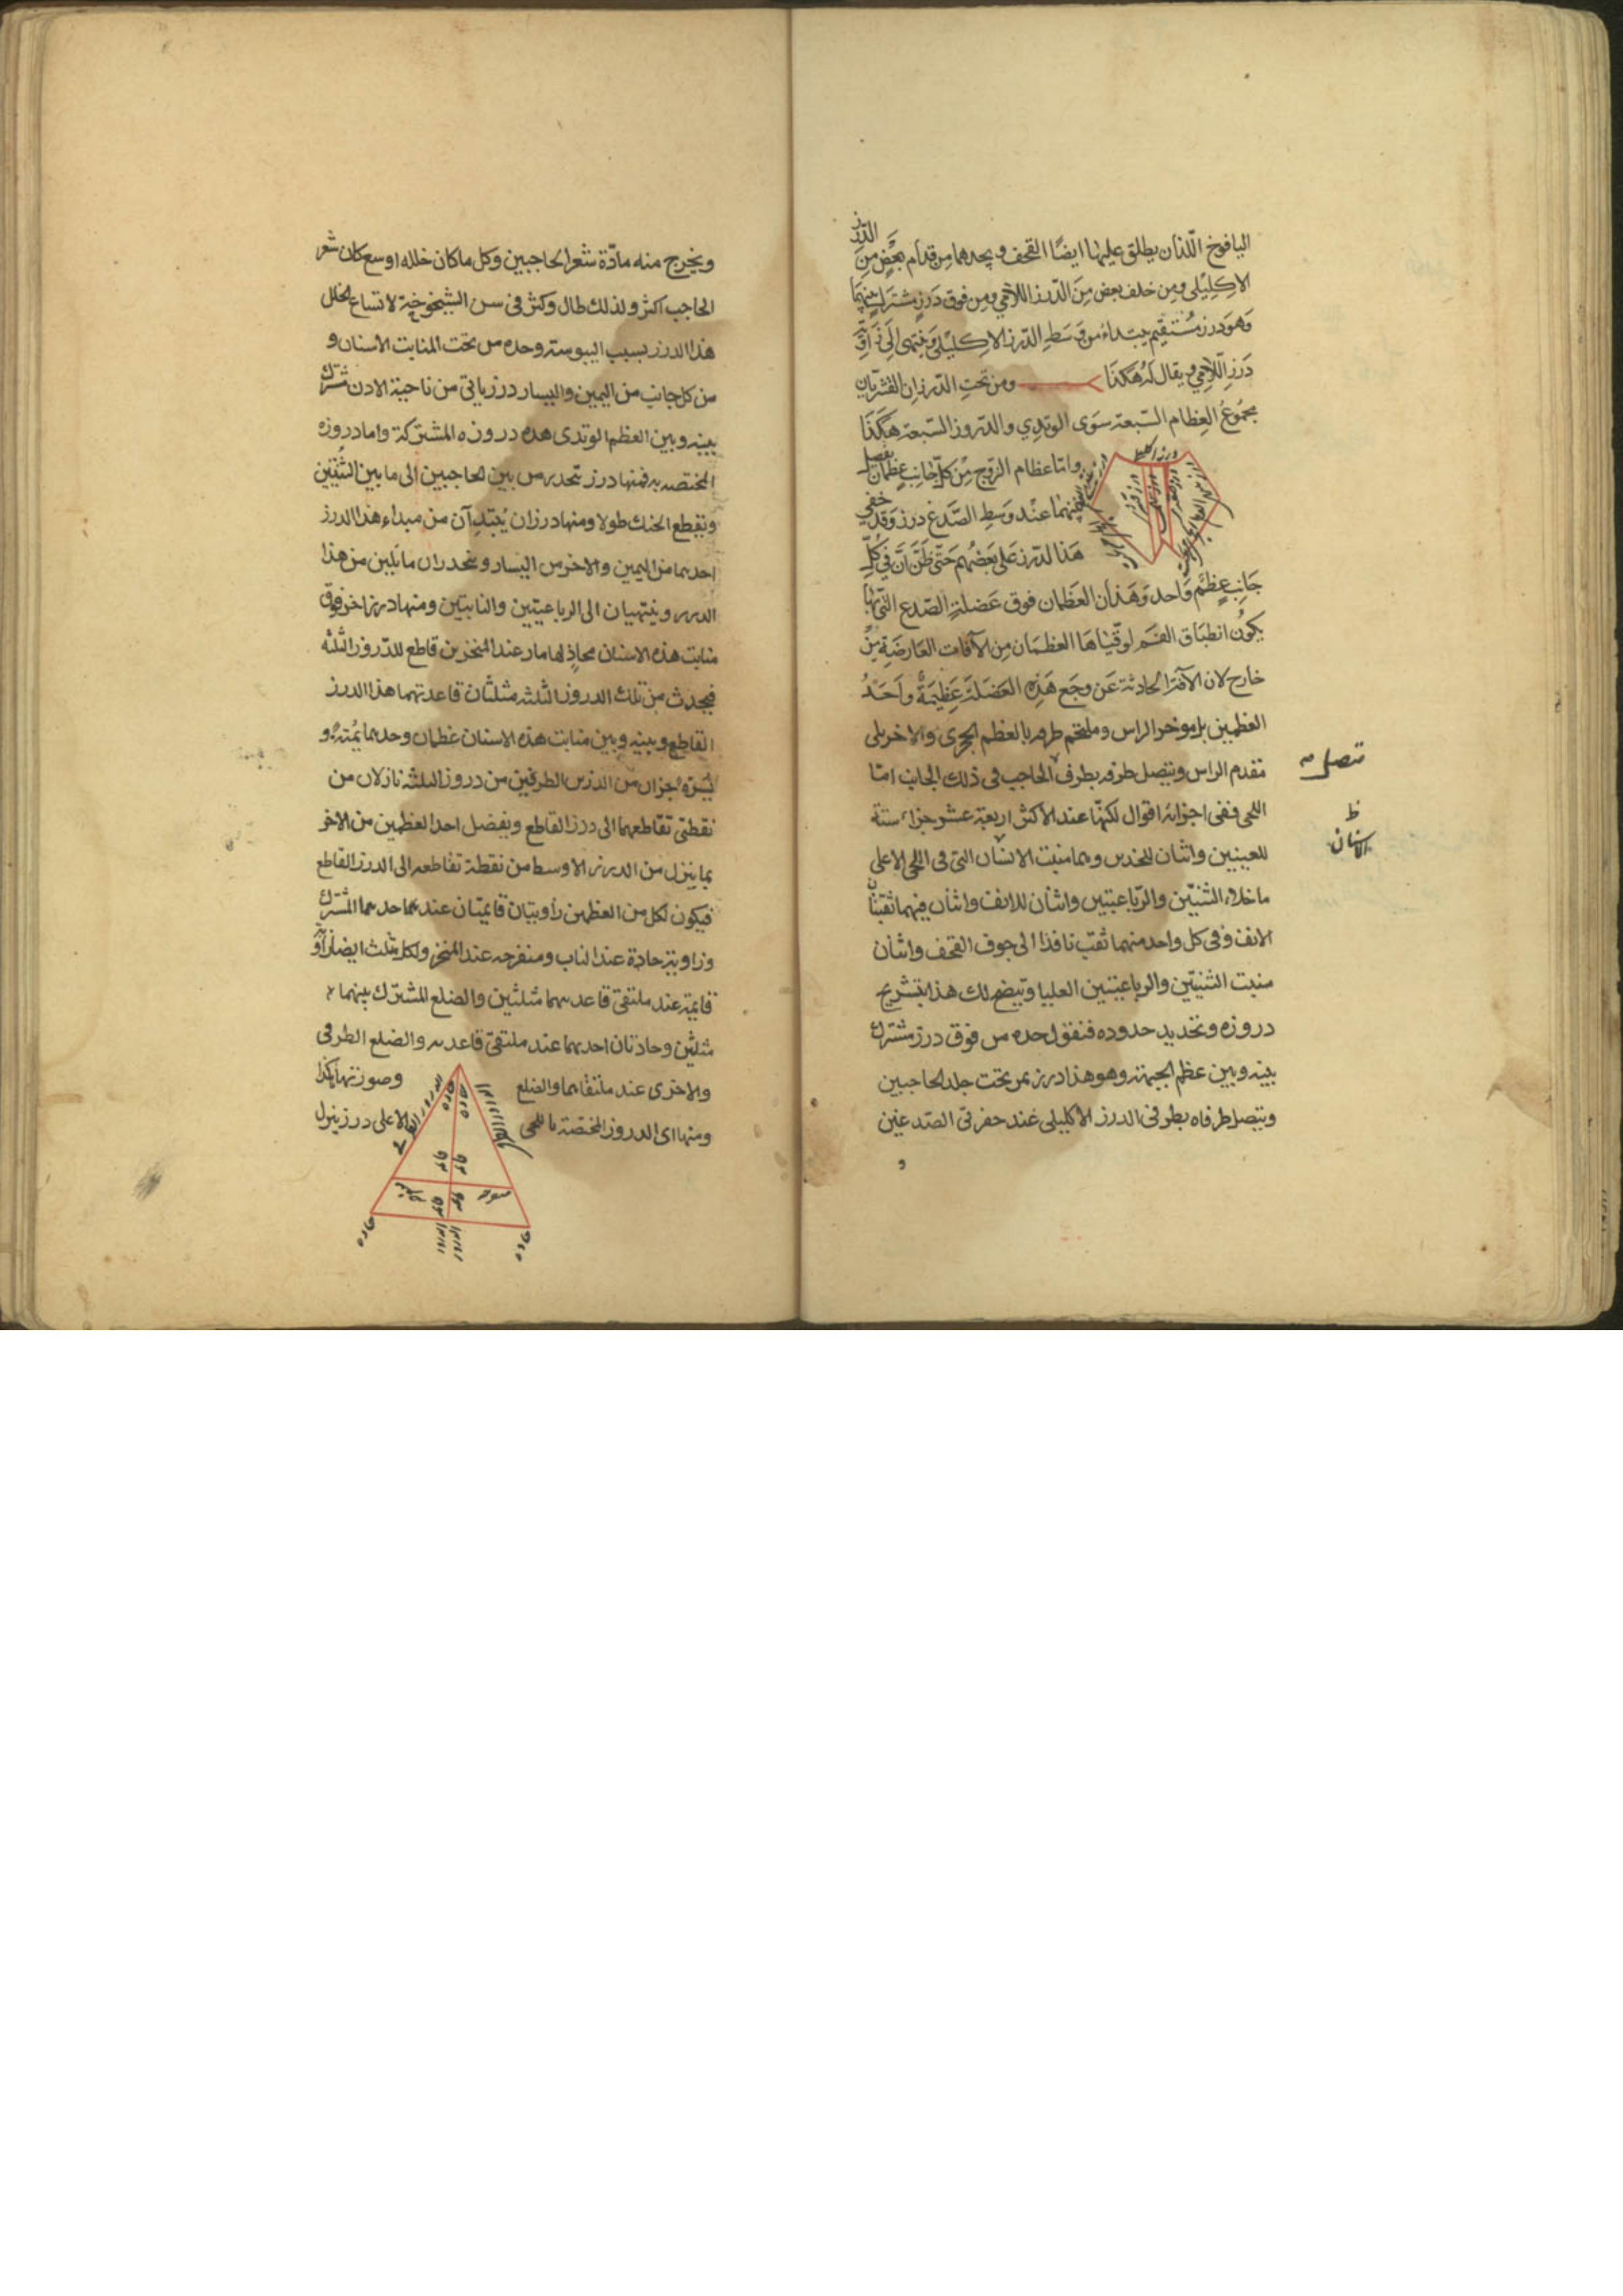 اليافوخ اللذان يطلق عليهما ايضًا القحف ويحدهما من قدام بعض من الدرز
الاكليلى ومن خلف بعض من الدرز اللامي ومن فوق درز مشترك بينهما
وهو درز مستقيم يبتداء من وسط الدرز الاكليلي وينتهى الى زاوية
درز اللامي ويقال له هكذا ومن تحت الدرزان القشريان
مجموع العظام السبعة سوى الوتدي والدروز السبعة هكذا
واما عظام الزوج من كل جانب عظمان يفصل
بينهما عند وسط الصدغ درز وقد خفي
هذا الدرز على بعضهم حتى ظن ان في كل
جانب عظم واحد وهذان العظمان فوق عضلة الصدغ التي بها
يكون انطباق الفم لوقيناها العظمان من الآفات العارضة من
خارج لان الآفة الحادثة عن وجع هذه العضلة عظيمة واحد
العظمين يلى موخر الراس وملتحم طرفه بالعظم الحجرى والاخر يلى
مقدم الراس ويتصل طرفه بطرف الحاجب فى ذلك الجانب امّا
اللحى ففى اجزائه اقوال لكنّها عند الاكثر اربعة عشر جزاء ستة
للعينين واثنان للخدين وهما منبت الانسان التى فى اللحى الاعلى
ما خلاء الثنيّتين والرباعيتين واثنان للانف واثنان فيهما ثقبتان
الانف وفى كل واحد منهما ثقب نافذا الى جوف القحف واثنان
منبت الثنيتين والرباعيتين العليا ويتضح لك هذا بتشريح
دروزه وتحديد حدوده فنقول حده من فوق درز مشترك
بينه وبين عظم الجبهة وهو هذا درز يمر تحت جلد الحاجبين
ويتصل طرفاه بطرفى الدرز الاكليلى عند حفرتى الصدغين
و
متصل
ظ
الاسنان
ويخرج منه مادّة شعر الحاجبين وكل ما كان خلله اوسع كان شعر
الحاجب اكثر ولذلك طال وكثر فى سن الشيخوخية لاتساع الخلل
هذا الدرز بسبب اليبوسة وحده من تحت المنابت الاسنان و
من كل جانب من اليمين واليسار درز ياتى من ناحية الاذن مشترك
بينه وبين العظم الوتدى هذه دروزه المشتركة واما دروزه
المختصه به فمنها درز يتحدر من بين الحاجبين الى ما بين الثنيتين
ويقطع الحنك طولا ومنها درزان يبتدآن من مبداء هذا الدرز
احدهما من اليمين والاخر من اليسار وينحدران مائلين من هذا
الدرز وينتهيان الى الرباعيتين والنابيتين ومنها درز اخر فوق
منابت هذه الاسنان محاذ لها مار عند المنخرين قاطع للدروز الثلثه
فيحدث من تلك الدروز الثلثه مثلثان قاعدتهما هذا الدرز
القاطع وبينه وبين منابت هذه الاسنان عظمان وحدهما يمنة و
يسرة جزان من الدرزين الطرفين من دروز الثلثه نازلان من
نقطتى تقاطعهما الى درز القاطع ويفصل احد العظمين من الاخر
بما ينزل من الدرز الاوسط من نقطة تقاطعه الى الدرز القاطع
فيكون لكل من العظمين زاويتان قايمتان عند هما حدهما المشترك
وزاوية حادة عند الناب ومنفرجه عند المنخر ولكل مثلث ايضا زاوية
قايمة عند ملتقى قاعدتهما مثلثين والضلع المشترك بينهما
مثلثين وحادتان احدهما عند ملتقى قاعدته والضلع الطرفى
والاخرى عند ملتقاهما والضلع وصورتها هكذا
ومنها اى الدروز المختصة باللحى الاعلى درز ينزل
حاده
حاده